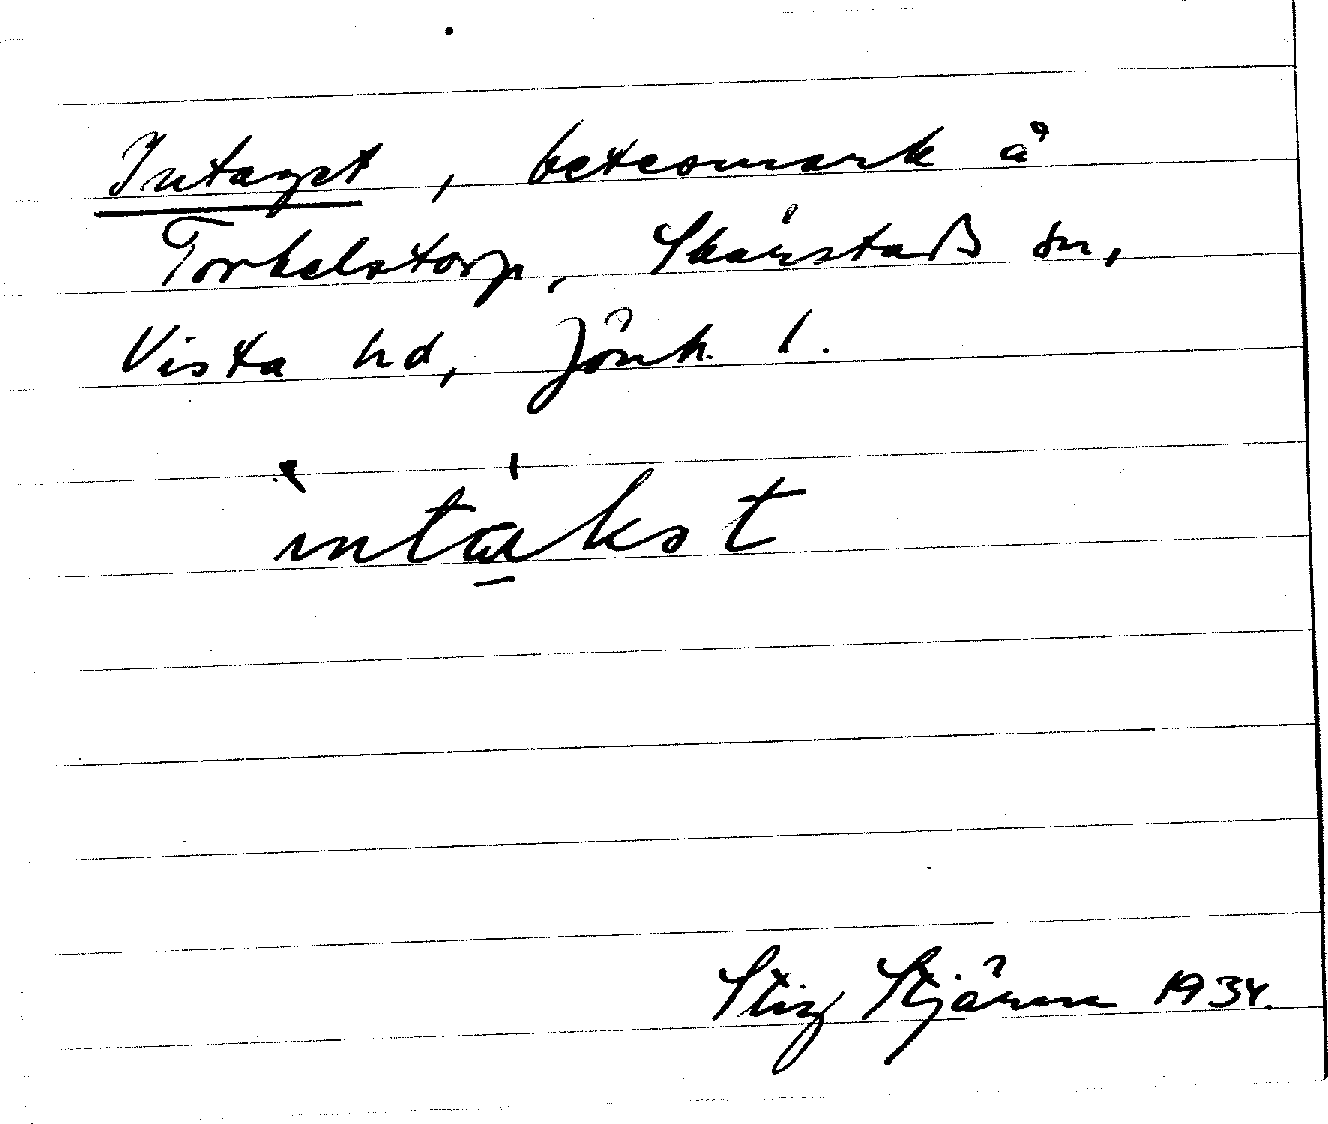 Intagst, betesmark å
Torkelstorp, Skärstads sn,
Vista hd, Jönk. l.
intakst
Stig Stjärna 1934.